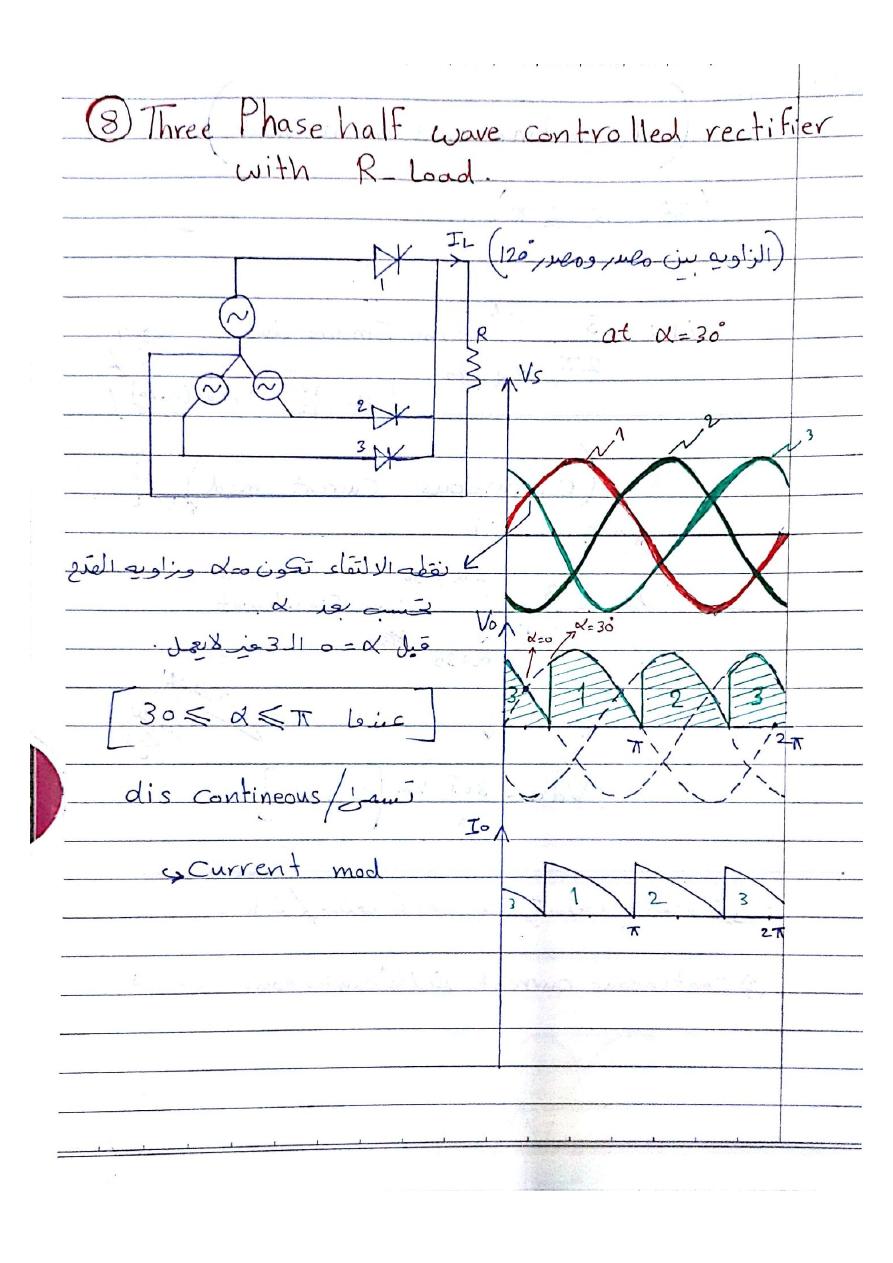 8 Three Phase half wave controlled rectifier
with R- Load.
IL
(الزاويه بين مصدر ومصدر 120°)
1
R
at α = 30°
Vs
2
3
1
2
3
نقطه الالتقاء تكون α=0 وزاويه القدح
تحسب بعد α
قبل α = 0 الـ 3 فيز لايعمل.
Vo
α=0
α=30°
3
1
2
3
π
2π
[ عندما 30 ⩽ α ⩽ π ]
تسمى / dis contineous
↳ Current mod
Io
3
1
2
3
π
2π